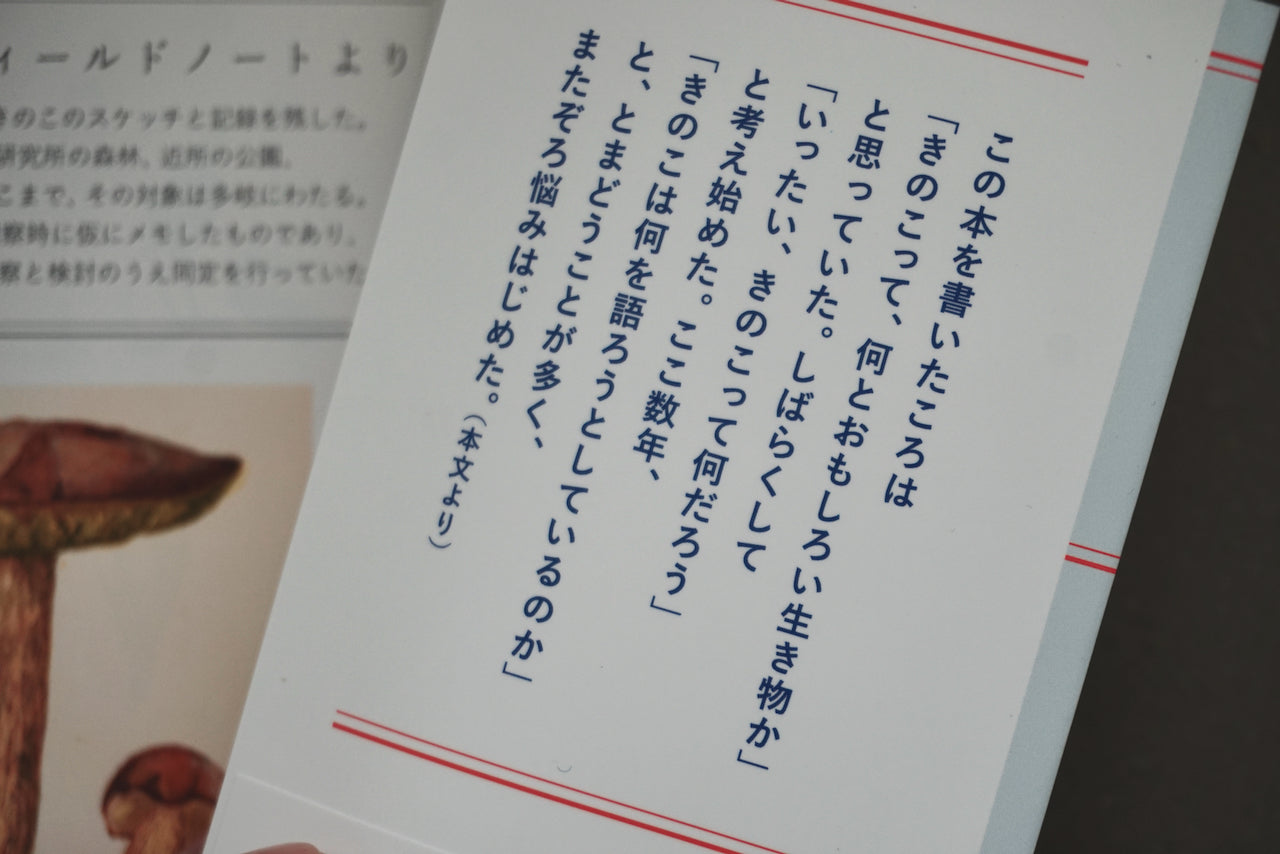 この本を書いたころは
「きのこって、何とおもしろい生き物か」
と思っていた。しばらくして
「いったい、きのこって何だろう」
と考え始めた。ここ数年、
「きのこは何を語ろうとしているのか」
と、とまどうことが多く、
またぞろ悩みはじめた。(本文より)
ィールドノートより
きのこのスケッチと記録を残した。
研究所の森林、近所の公園、
こまで、その対象は多岐にわたる。
察時に仮にメモしたものであり、
察と検討のうえ同定を行っていた